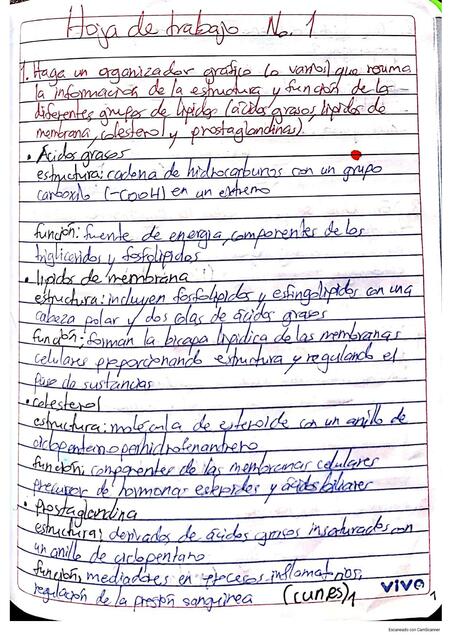 Hoja de trabajo No. 1
1. Haga un organizador gráfico (o varios) que resuma
la información de la estructura y función de los
diferentes grupos de lípidos (ácidos grasos, lípidos de
membrana, colesterol y prostaglandinas).
• Ácidos grasos
estructura: cadena de hidrocarburos con un grupo
carboxilo (-COOH) en un extremo
función: fuente de energía, componentes de los
trigliceridos y fosfolipidos
• lipidos de membrana
estructura: incluyen fosfolipidos y esfingolipidos con una
cabeza polar y dos colas de ácidos grasos
función: forman la bicapa lipidica de las membranas
celulares proporcionando estructura y regulando el
de sustancias
• colesterol
estructura: molécula de esteroide con un anillo de
ciclopentanoperhidrofenantreno
función: componentes de las membranas celulares
precursor de hormonas esteroides y ácidos biliares
• Prostaglandina
estructura: derivados de ácidos grasos insaturados con
un anillo de ciclopentano
función: mediadores en procesos inflamatorios,
regulación de la presión sanguínea (cunes) 1
vivo
1
Escaneado con CamScanner